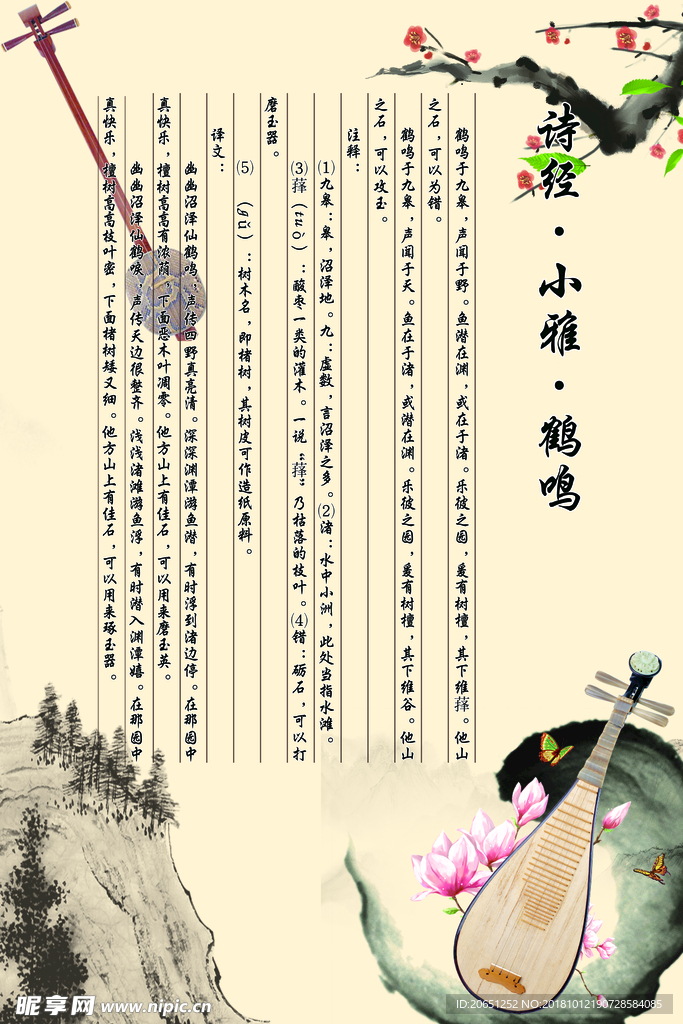 诗经·小雅·鹤鸣
鹤鸣于九皋，声闻于野。鱼潜在渊，或在于渚。乐彼之园，爰有树檀，其下维萚。他山
之石，可以为错。
鹤鸣于九皋，声闻于天。鱼在于渚，或潜在渊。乐彼之园，爰有树檀，其下维谷。他山
之石，可以攻玉。
注释：
⑴九皋：皋，沼泽地。九：虚数，言沼泽之多。⑵渚：水中小洲，此处当指水滩。
⑶萚（tuò）：酸枣一类的灌木。一说“萚”乃枯落的枝叶。⑷错：砺石，可以打
磨玉器。
⑸ （gǔ）：树木名，即楮树，其树皮可作造纸原料。
译文：
幽幽沼泽仙鹤鸣，声传四野真亮清。深深渊潭游鱼潜，有时浮到渚边停。在那园中
真快乐，檀树高高有浓荫，下面恶木叶凋零。他方山上有佳石，可以用来磨玉英。
幽幽沼泽仙鹤唳，声传天边很整齐。浅浅渚滩游鱼浮，有时潜入渊潭嬉。在那园中
真快乐，檀树高高枝叶密，下面楮树矮又细。他方山上有佳石，可以用来琢玉器。
昵享网 www.nipic.cn
ID:20651252 NO:20181012190728584085